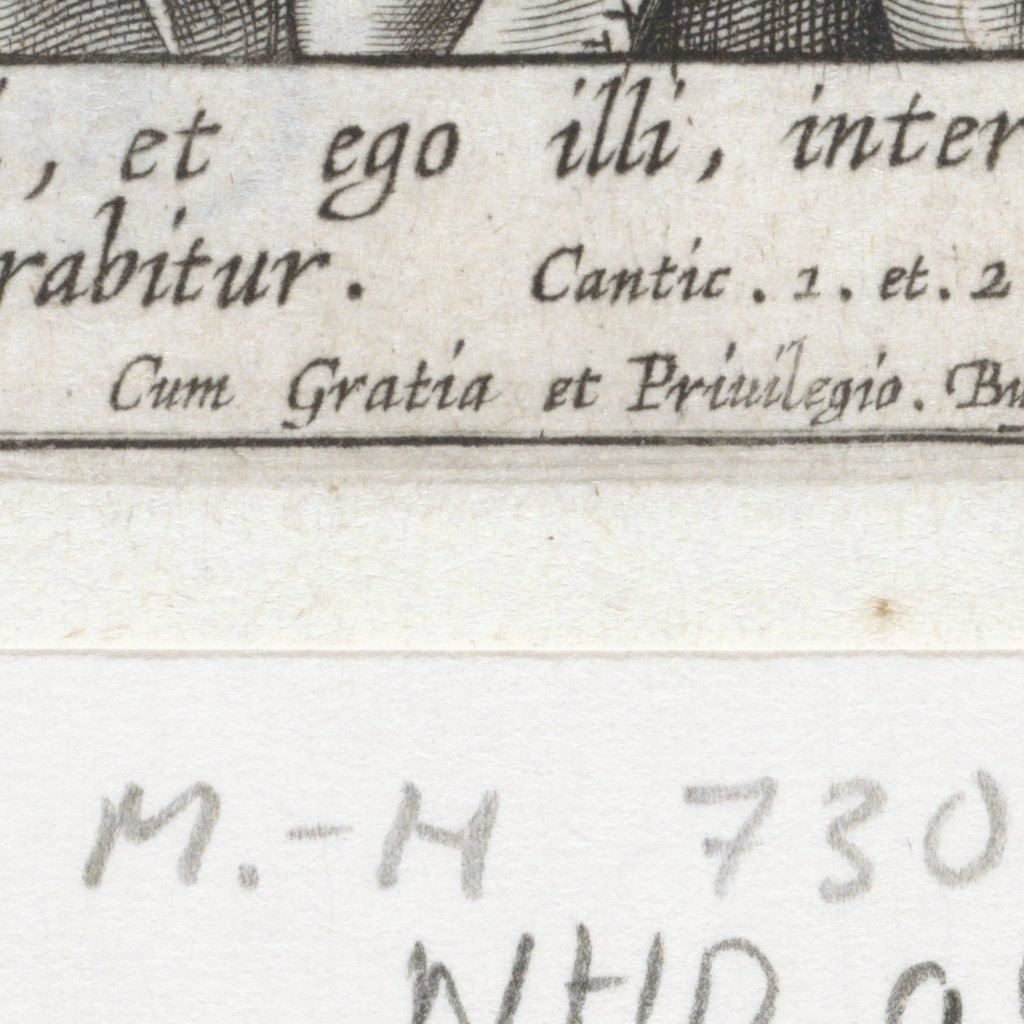 , et ego illi, inter
rabitur. Cantic. 1. et. 2
Cum Gratia et Priuilegio. Bu
M.-H 730
NHD